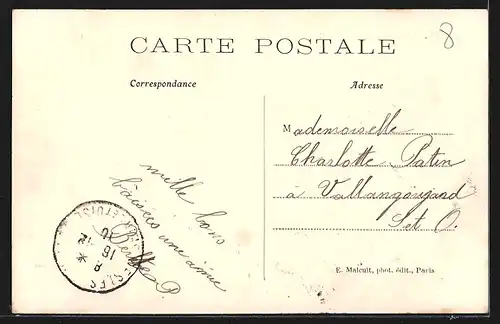 8
CARTE POSTALE
Correspondance
Adresse
Mademoiselle
Charlotte Patin
à Vallangoujard
Set O.
mille bons
baisers une amie
P.
E. Malcuit, phot. édit., Paris